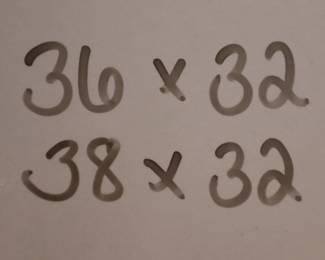 36 x 32
38 x 32